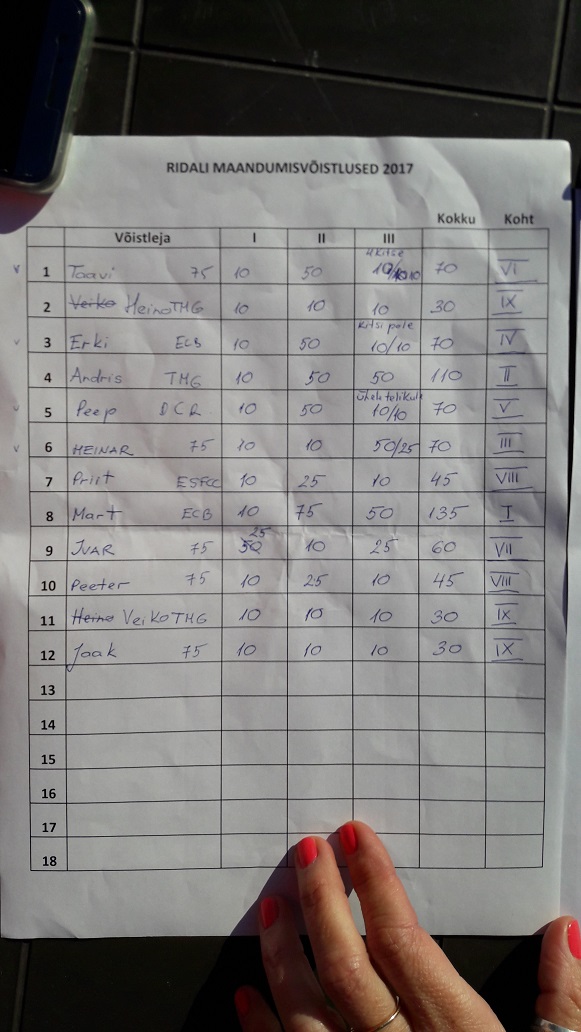 RIDALI MAANDUMISVÕISTLUSED 2017
Võistleja I II III Kokku Koht
1 Taavi 75 10 50 4 kitse 10/10 10 70 VI
2 Veiko Heino TMG 10 10 10 30 IX
3 Erki ECB 10 50 Kitsi pole 10/10 70 IV
4 Andris TMG 10 50 50 110 II
5 Peep DCR 10 50 ühele telikule 10/10 70 V
6 HEINAR 75 10 10 50/25 70 III
7 Priit ESFCC 10 25 10 45 VIII
8 Mart ECB 10 75 50 135 I
9 IVAR 75 50 25 10 25 60 VII
10 Peeter 75 10 25 10 45 VIII
11 Heino Veiko TMG 10 10 10 30 IX
12 Jaak 75 10 10 10 30 IX
13
14
15
16
17
18